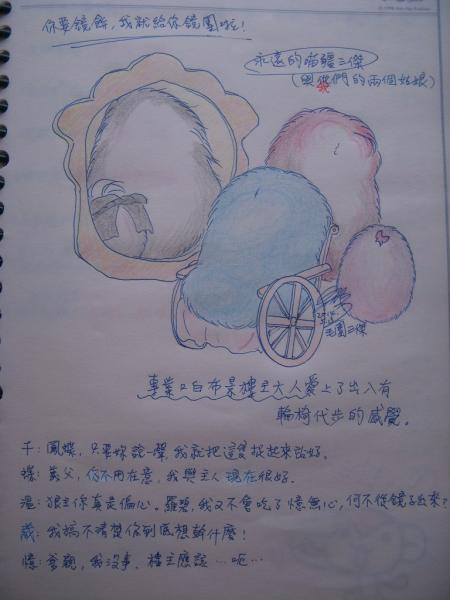 你要鏡餅，我就給你鏡團啦！
永遠的喵疆三傑
(與他們的兩個姑娘)
毛團三傑
專業口白布景樓主大人愛上了出入有
輪椅代步的感覺。
千：鳳蝶，只要妳說一聲，我就把這隻捉起來說好。
蝶：義父，你不用在意，我與主人現在很好。
狼主你真是偏心。羅碧，我又不會吃了憶無心，何不從鏡子出來？
藏：我搞不清楚你到底想幹什麼！
憶：爹親，我沒事，樓主應該…呃…